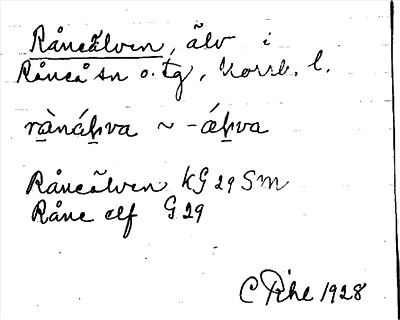 Råneälven, älv i
Råneå sn o. tg, Norrb. l.
rànáḫva ~ -áḫva
Råneälven KG 29 Sm
Råne elf G 29
C Pihl 1928